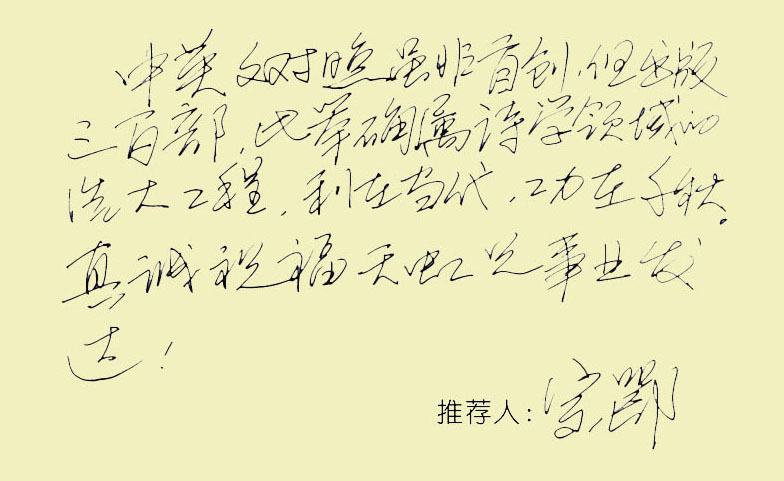 中英文对照虽非首创，但出版
三百部，此举确属诗学领域的
浩大工程，利在当代，功在千秋。
真诚祝福天虹兄事业发
达！
推荐人：宗鄂